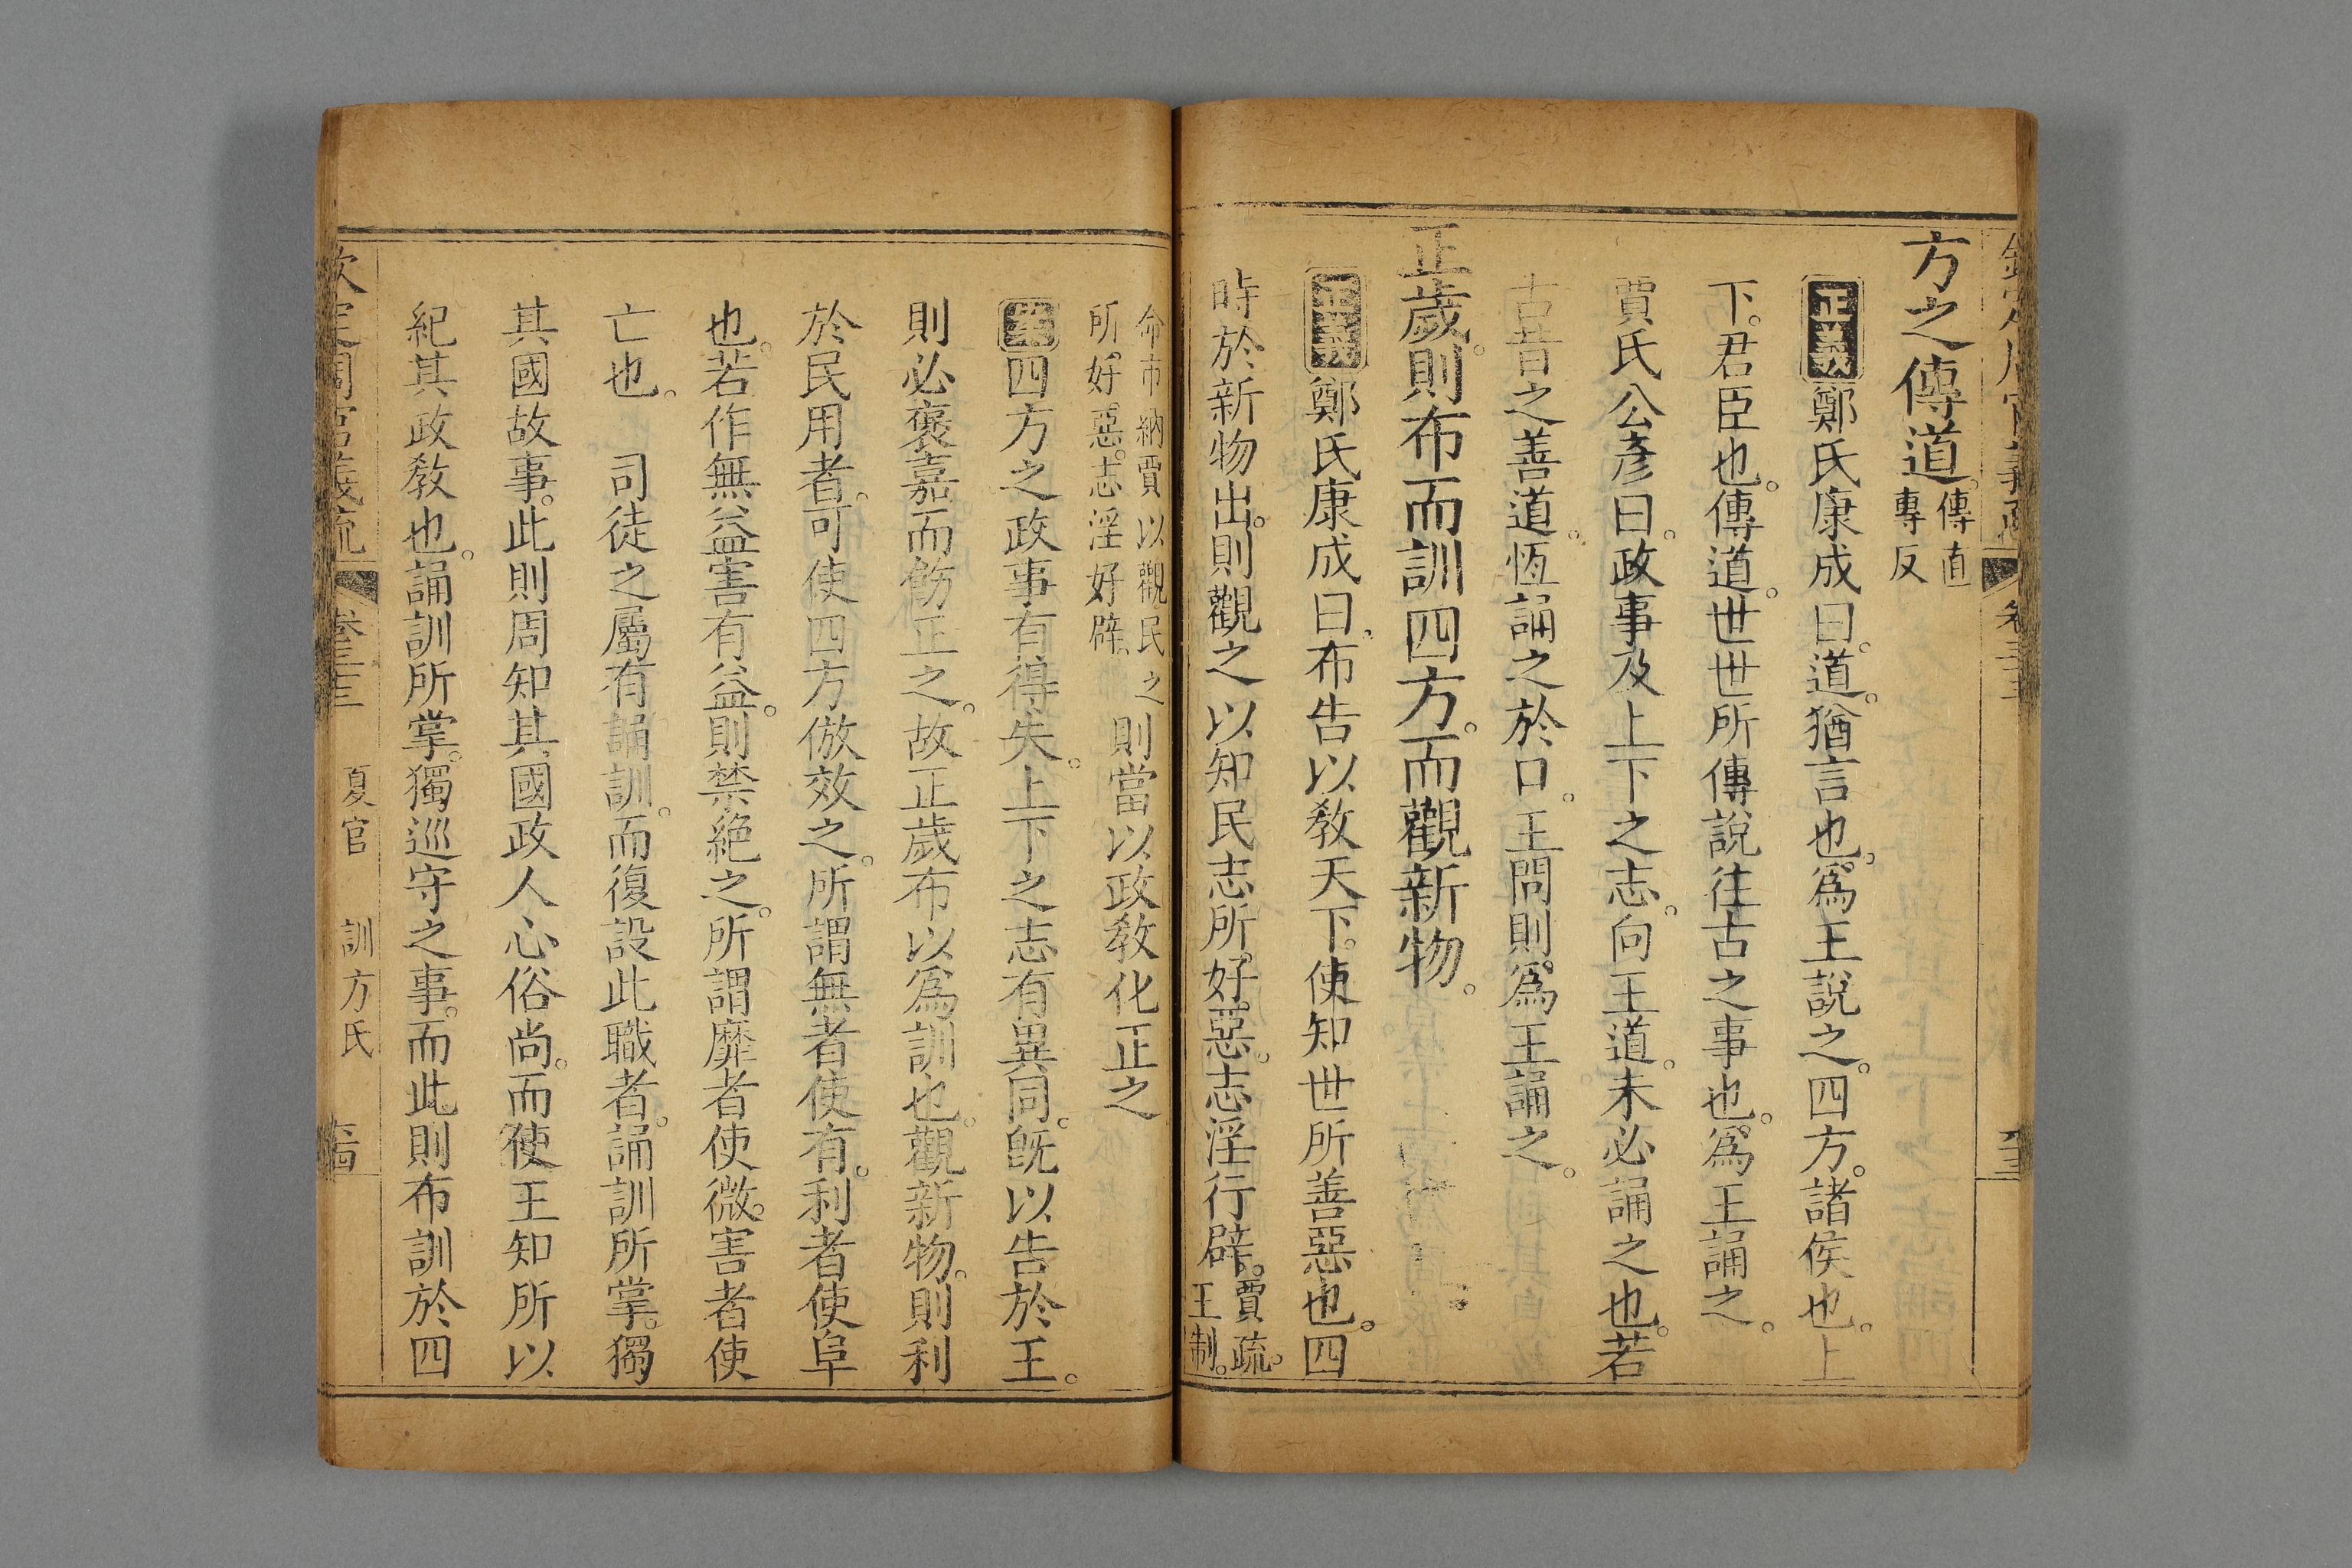 方之傳道。傳直專反
正義鄭氏康成曰。道。猶言也。爲王說之。四方。諸侯也。上
下。君臣也。傳道。世世所傳說往古之事也。爲王誦之。
賈氏公彥曰。政事及上下之志。向王道。未必誦之也。若
古昔之善道。恆誦之於口。王問則爲王誦之。
正歲。則布而訓四方。而觀新物。
正義鄭氏康成曰。布告以敎天下。使知世所善惡也。四
時於新物出。則觀之以知民志所好惡。志淫行辟。賈疏。王制。
命市納賈以觀民之所好惡。志淫好辟。則當以政敎化正之
四方之政事有得失。上下之志有異同。旣以告於王。
則必褒嘉而飭正之。故正歲布以爲訓也。觀新物。則利
於民用者。可使四方倣效之。所謂無者使有。利者使阜
也。若作無益害有益。則禁絶之。所謂靡者使微。害者使
亡也。 司徒之屬有誦訓。而復設此職者。誦訓所掌。獨
其國故事。此則周知其國政人心俗尚。而使王知所以
紀其政敎也。誦訓所掌。獨巡守之事。而此則布訓於四
欽定周官義疏 卷三十三 夏官 訓方氏